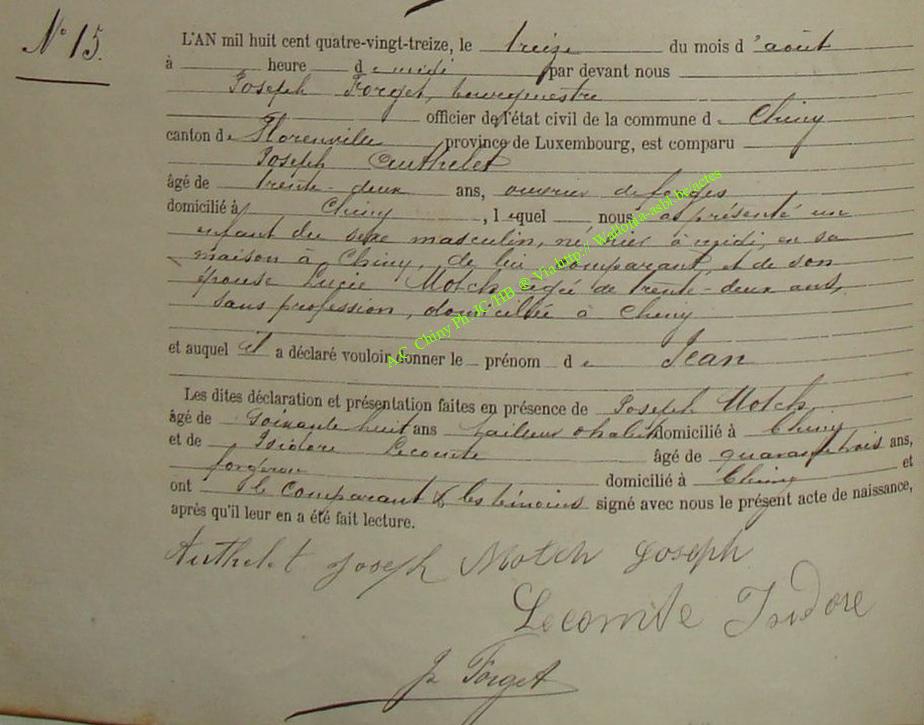 N° 15.
L'AN mil huit cent quatre-vingt-treize, le treize du mois d'août
à heure de midi par devant nous
Joseph Forget, bourgmestre
officier de l'état civil de la commune de Chiny
canton de Florenville province de Luxembourg, est comparu
Joseph Authelet
âgé de trente-deux ans, ouvrier de forges
domicilié à Chiny, lequel nous a présenté un
enfant du sexe masculin, né hier à midi, en sa
maison à Chiny, de lui comparant, et de son
épouse Lucie Motch, agée de trente-deux ans,
sans profession, domiciliée à Chiny
et auquel il a déclaré vouloir donner le prénom de Jean
Les dites déclaration et présentation faites en présence de Joseph Motch
âgé de soixante huit ans tailleur d'habits domicilié à Chiny
et de Isidore Lecomte âgé de quarante trois ans,
forgeron domicilié à Chiny et
ont le comparant & les témoins signé avec nous le présent acte de naissance,
après qu'il leur en a été fait lecture.
Authelet Joseph Motch Joseph
Lecomte Isidore
J. Forget
A.C. Chiny Ph JC-HB ® Via http:// Wallonia-asbl.be/actes